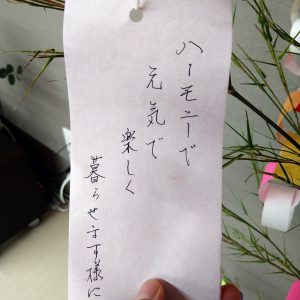 ハーモニーで
元気で
楽しく
暮らせます様に